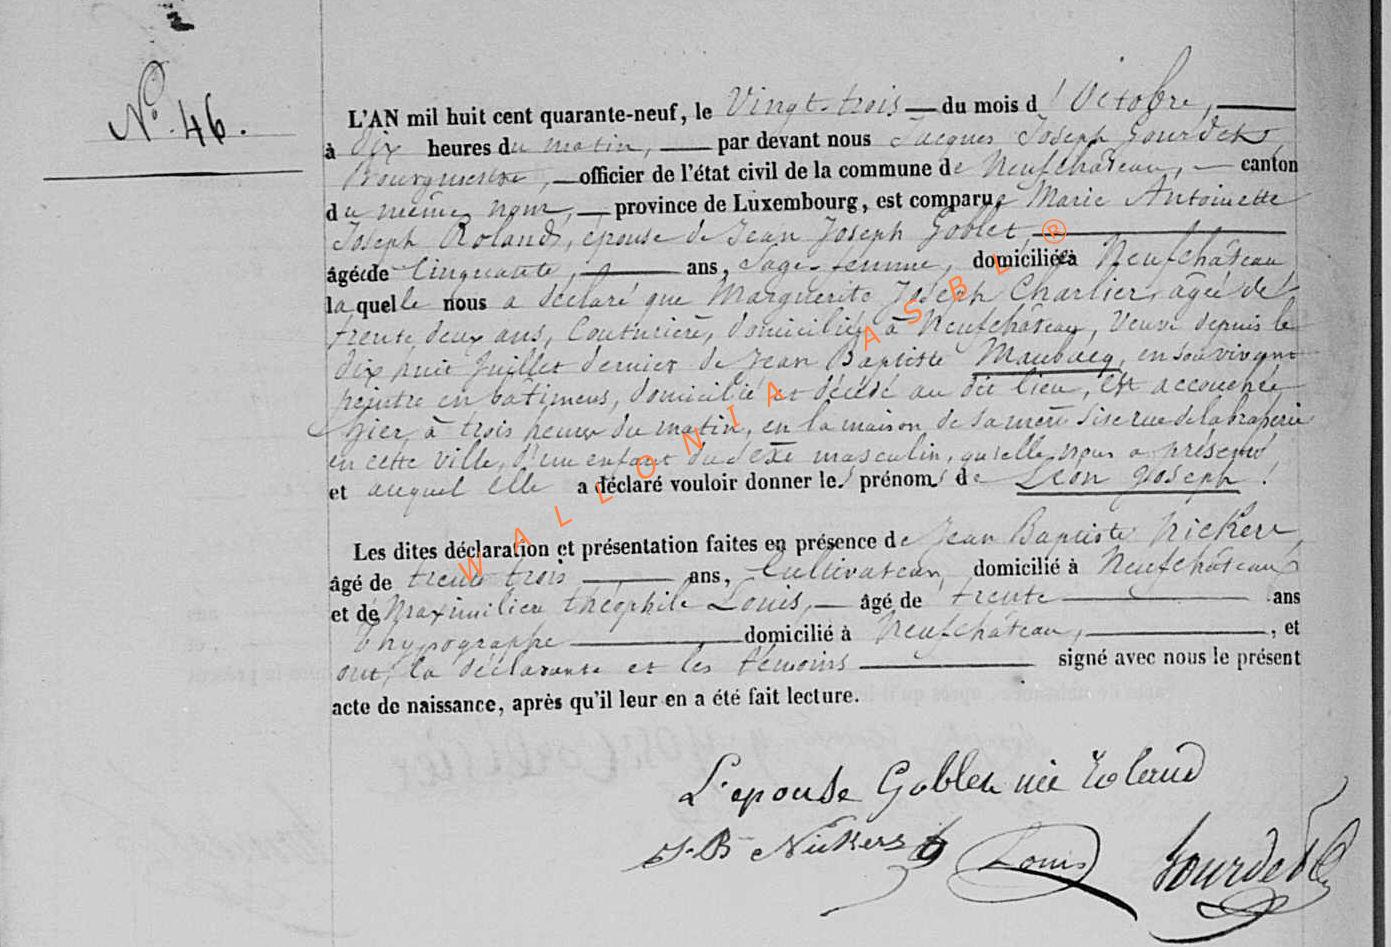 No. 46.
L'AN mil huit cent quarante-neuf, le Vingt-trois du mois d'Octobre,
à Dix heures du matin, par devant nous Jacques Joseph Gourdet
Bourguestre, officier de l'état civil de la commune de Neufchâteau, canton
du même nom, province de Luxembourg, est comparue Marie Antoinette
Joseph Roland, épouse de Jean Joseph Goblet,
âgée de Cinquante, ans, Sage-femme, domiciliée à Neufchâteau
laquelle nous a déclaré que Marguerite Joseph Charlier, âgée de
trente deux ans, Couturière, domiciliée à Neufchâteau, Veuve depuis le
dix huit Juillet dernier de Jean Baptiste Maubacq, en son vivant
peintre en bâtimens, domicilié et décédé au dit lieu, est accouchée
hier, à trois heures du matin, en la maison de sa mère sise rue de la draperie
en cette ville, d'un enfant du sexe masculin, qu'elle nous a présenté
et auquel elle a déclaré vouloir donner les prénoms de Léon Joseph !
Les dites déclaration et présentation faites en présence de Jean Baptiste Nickers,
âgé de trente trois ans, Cultivateur, domicilié à Neufchâteau
et de Maximilien théophile Louis, âgé de trente ans
thypographe domicilié à Neufchâteau, , et
ont, la déclarante et les témoins signé avec nous le présent
acte de naissance, après qu'il leur en a été fait lecture.
L'épouse Goblet née Roland
J. B. Nickers Louis Gourdet
WALLONIA ASBL ®